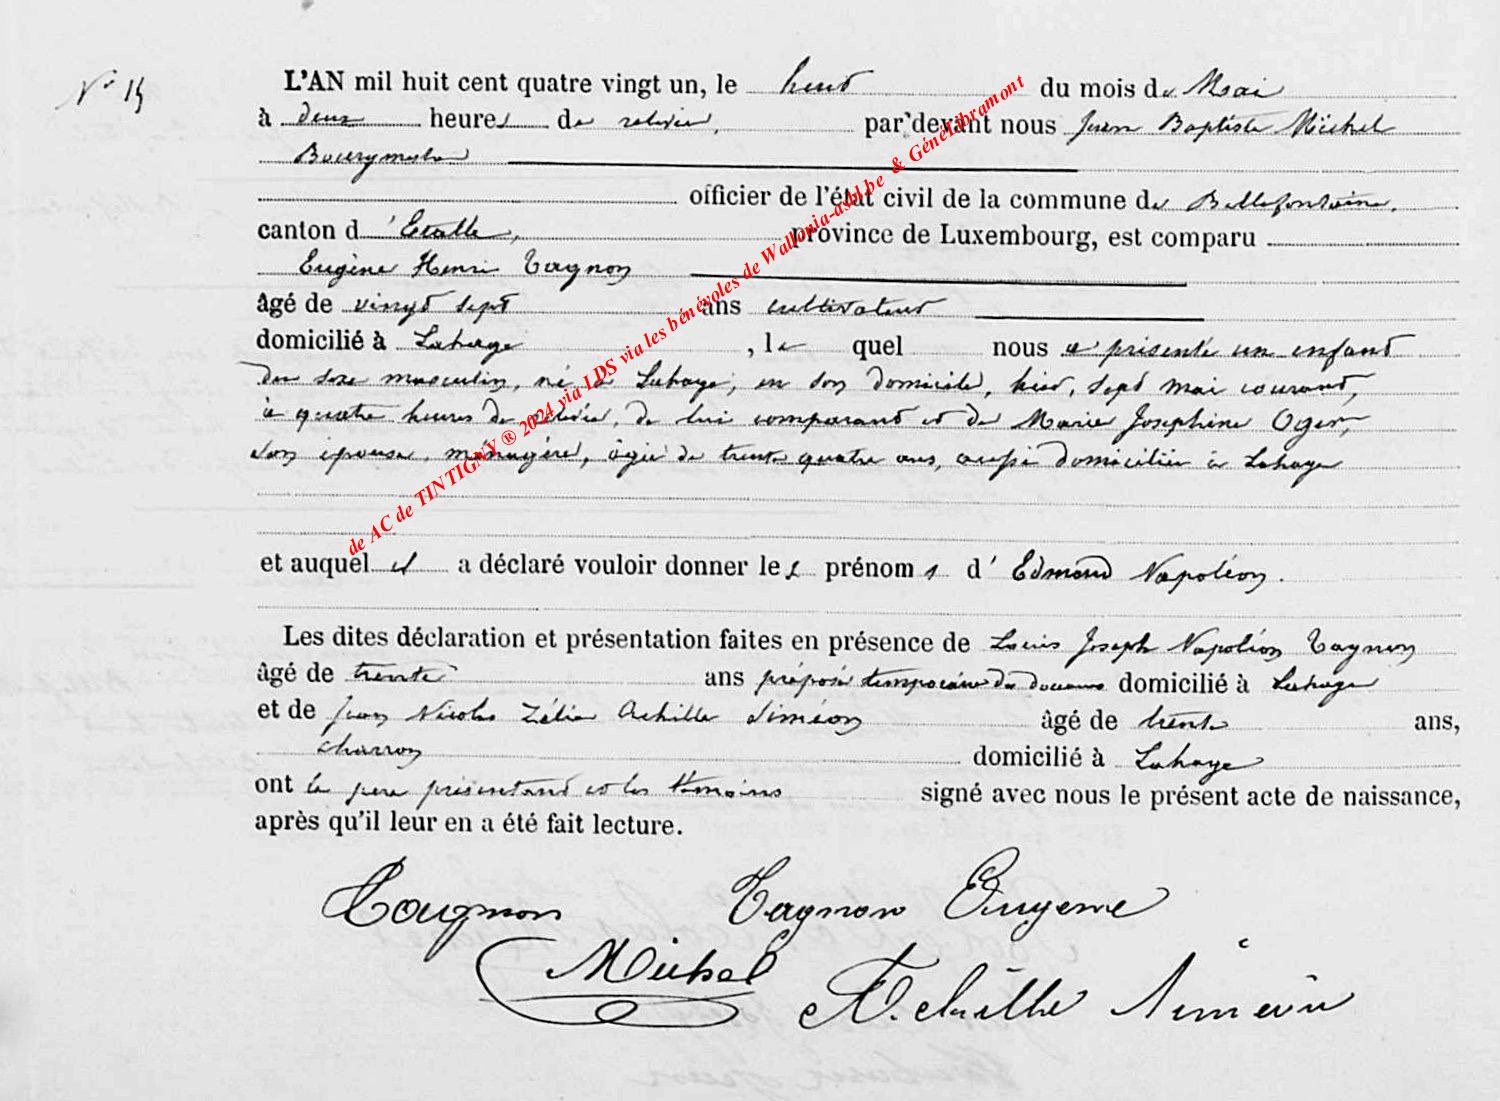 N° 15
L'AN mil huit cent quatre vingt un, le huit du mois de Mai
à deux heures de relevée, par'devant nous Jean Baptiste Michel
Bourgmestre
officier de l'état civil de la commune de Bellefontaine,
canton d'Etalle, province de Luxembourg, est comparu
Eugène Henri Tagnon
âgé de vingt sept ans cultivateur
domicilié à Lahage, le quel nous a présenté un enfant
du sexe masculin, né à Lahage, en son domicile, hier, sept mai courant,
à quatre heures de relevée, de lui comparant et de Marie Josephine Oger,
son épouse, ménagère, âgée de trente quatre ans, aussi domiciliée à Lahage
et auquel il a déclaré vouloir donner les prénoms d'Edmond Napoléon.
Les dites déclaration et présentation faites en présence de Louis Joseph Napoléon Tagnon
âgé de trente ans préposé temporaire des douanes domicilié à Lahage
et de Jean Nicolas Zélia Achille Siméon âgé de trente ans,
charron domicilié à Lahage
ont le père présentant et les témoins signé avec nous le présent acte de naissance,
après qu'il leur en a été fait lecture.
Tagnon Tagnon Eugene
Michel A. chille Siméon
de AC de TINTIGNY ® 2024 via LDS via les bénévoles de Wallonia-asbl.be & GénéLibramont